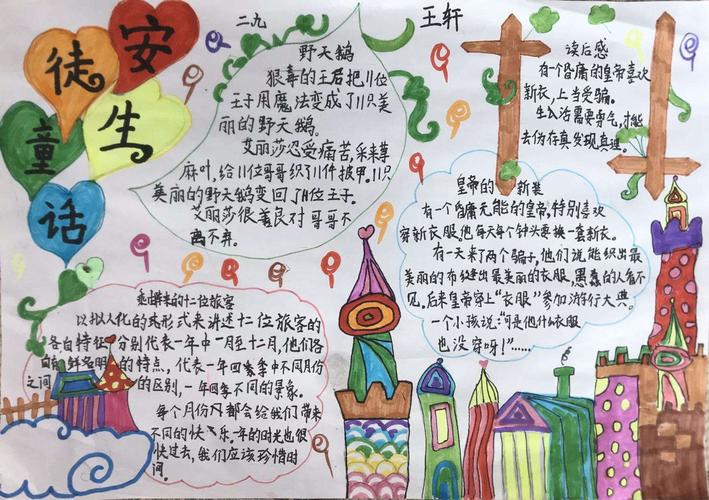 安
徒
生
童
话
二九
王轩
野天鹅
狠毒的王后把11位
王子用魔法变成了11只美
丽的野天鹅。
艾丽莎忍受痛苦,采来荨
麻叶,给11位哥哥织了11件披甲。11只
美丽的野天鹅变回了11位王子。
艾丽莎很善良对哥哥不
离不弃。
读后感
有一个昏庸的皇帝喜欢
新衣,上当受骗。
生活需要勇气,才能
去伪存真发现真理。
皇帝的新装
有一个昏庸无能的皇帝,特别喜欢
穿新衣服。他每天每个钟头要换一套新衣。
有一天来了两个骗子,他们说能织出最
美丽的布缝出最美丽的衣服,愚蠢的人看不
见。后来皇帝穿上“衣服”参加游行大典。
一个小孩说:“可是他什么衣服
也没穿呀!”……
乘邮车来的十二位旅客
以拟人化的形式来讲述十二位旅客的
各自特征,分别代表一年中一月至十二月,他们各
自有鲜明的特点,代表一年四季中不同月份
之间的区别,一年四季不同的景象。
每个月份都会给我们带来
不同的快乐。一年的时光也很
快过去,我们应该珍惜时
间。